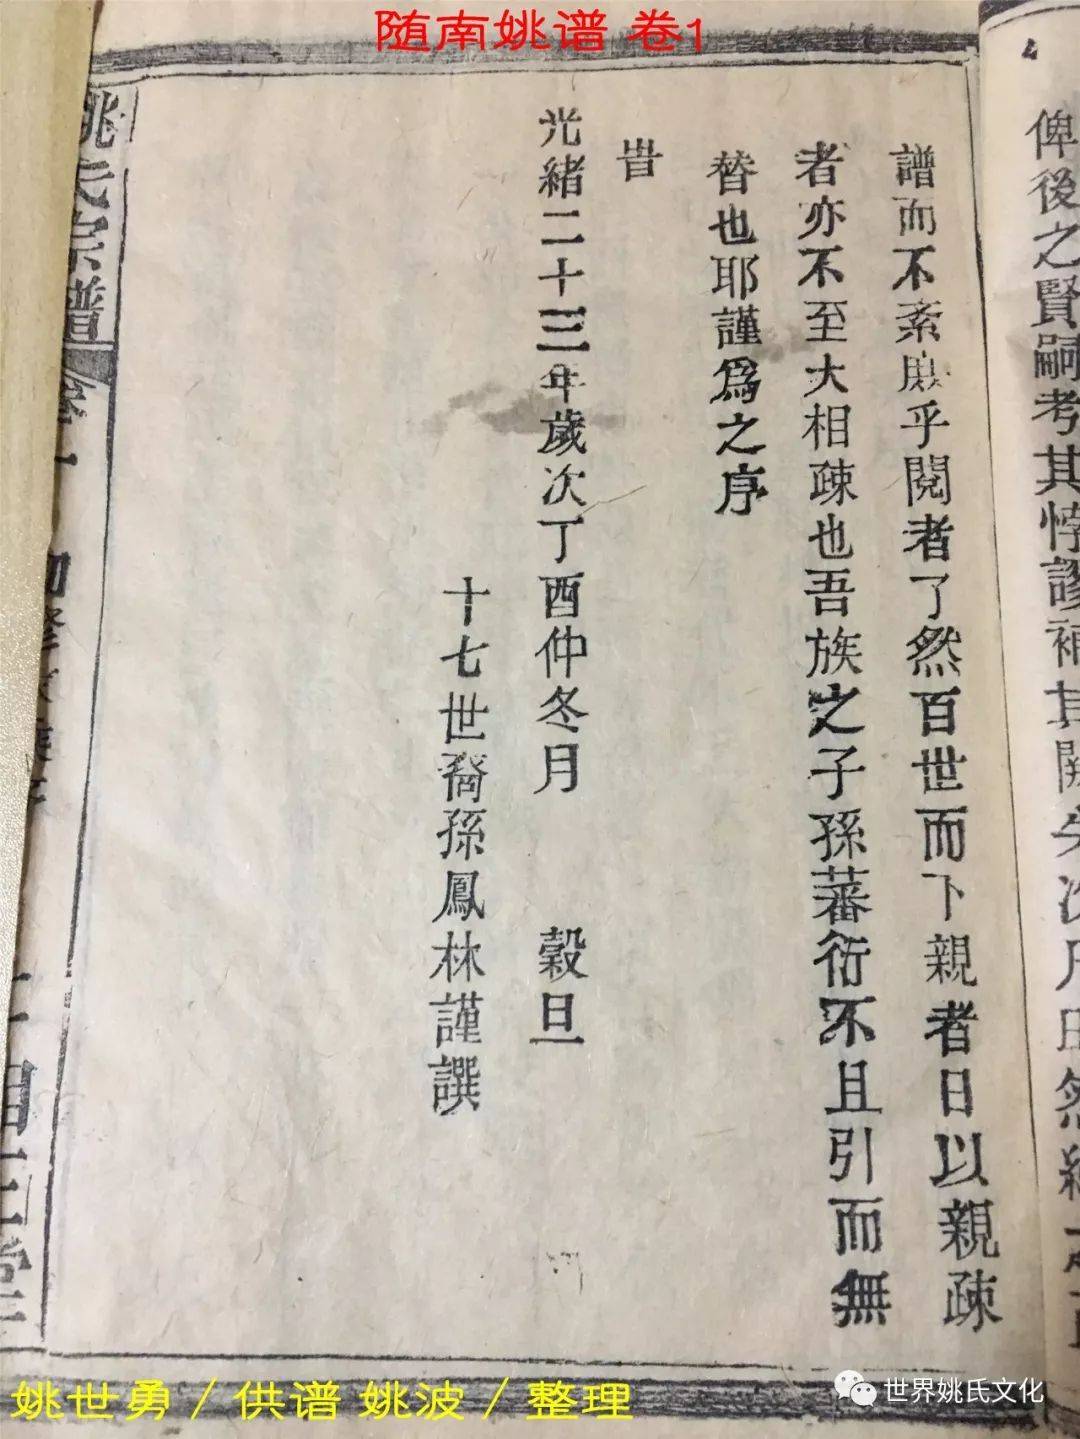 随南姚谱 卷1
俾後之賢嗣考其悖謬補其闕失次
譜而不紊庶乎閱者了然百世而下親者日以親疎
者亦不至大相疎也吾族之子孫蕃衍不且引而無
替也耶謹為之序
旹
光緒二十三年歲次丁酉仲冬月 穀旦
十七世裔孫鳳林謹譔
姚氏宗譜 卷一
姚世勇/供谱 姚波/整理
世界姚氏文化